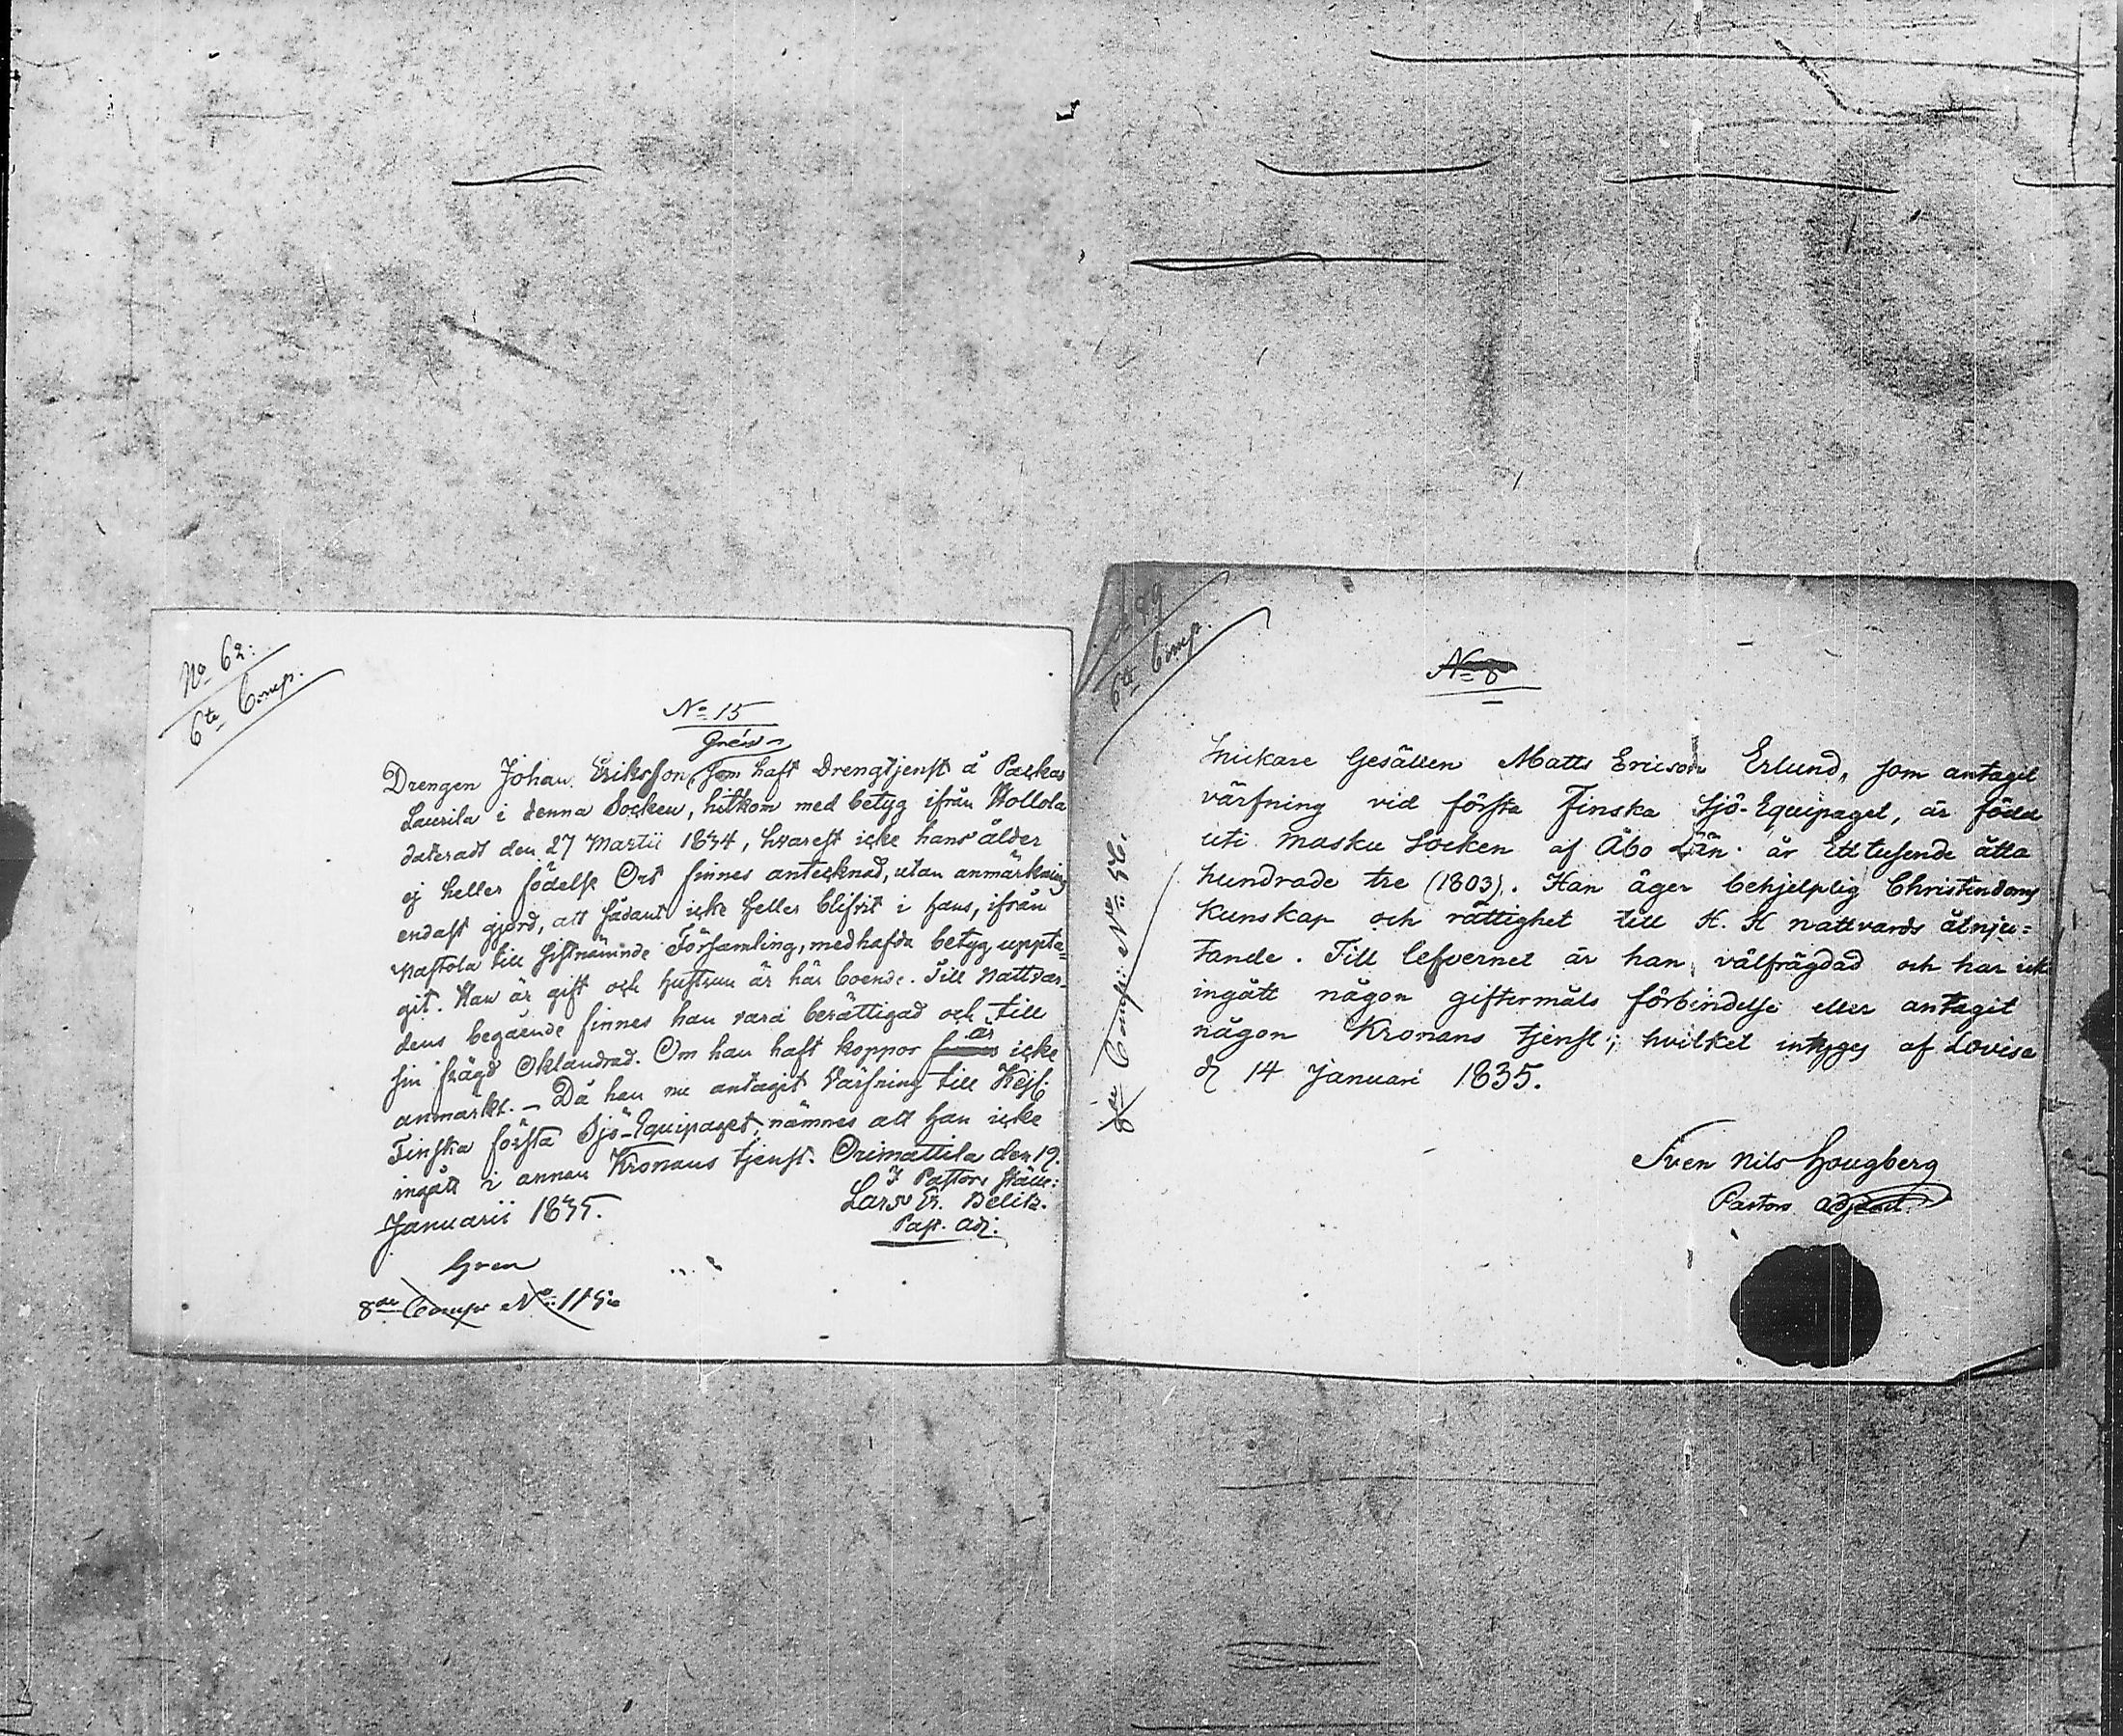 No 62:
6te Comp.
No 15
Grén
Drengen Johan Eriksson, som haft Drengtjenst å Packas
Laurila i denna Socken, hitkom med betyg ifrån Hollola
dateradt den 27 Martii 1834, hvarest icke hans ålder
ej heller födelse Ort finnes antecknad, utan anmärkning
endast gjord, att sådant icke heller blifvit i hans, ifrån
Nastola till sistnämnde Församling, medhafda betyg uppta=
git. Han är gift och hustrun är här boende. Till Nattvar-
dens begående finnes han vara berättigad och till
sin frägd Oklandrad. Om han haft koppor är icke
anmärkt. – Då han nu antagit Värfning till Kejs:
Finska första Sjö-Equipaget, nämnes att han icke
ingått i annan Kronans tjenst. Orimattila den 19.
Januarii 1835.
I Pastors ställe:
Lars Er. Delitz.
Past. Adj:
Gren
8de Comp No
189
6te Comp.
No 8
8de Comp: No 56.
Snickare Gesällen Matts Ericson Erlund, som antagit
värfning vid första Finska Sjö-Equipaget, är född
uti Masku Socken af Åbo Län år Ettusende åtta
hundrade tre (1803). Han äger behjelplig Christendoms
kunskap och rättighet till H. H nattvards åtnju=
tande. Till lefvernet är han välfrägdad och har ick
ingått någon giftermåls förbindelse eller antagit
någon Kronans tjenst; hvilket intygas af Lovisa
d 14 Januari 1835.
Sven Nils Hougberg
Pastors adjunct.